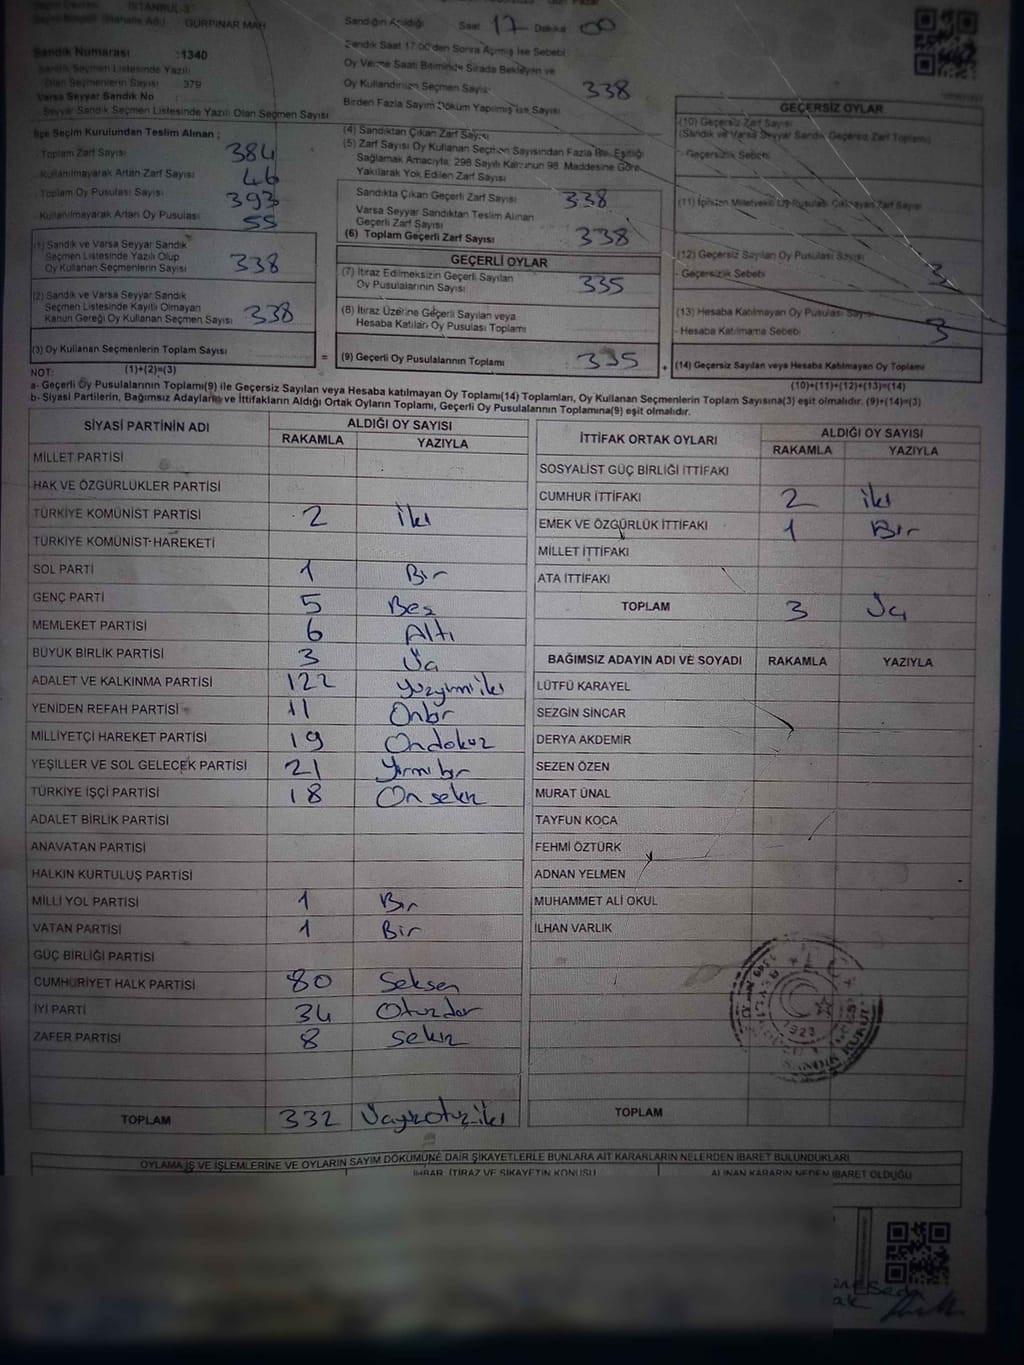 İSTANBUL-3
GÜRPINAR MAH
Sandık Numarası :1340
Sandık Seçmen Listesinde Yazılı
Olan Seçmenlerin Sayısı 379
Varsa Seyyar Sandık No
Seyyar Sandık Seçmen Listesinde Yazılı Olan Seçmen Sayısı
Sandığın Açıldığı Saat 17 Dakika 00
Sandık Saat 17.00'den Sonra Açılmış İse Sebebi
Oy Verme Saati Bitiminde Sırada Bekleyen ve
Oy Kullandırılan Seçmen Sayısı 338
Birden Fazla Sayım Döküm Yapılmış ise Sayısı
İlçe Seçim Kurulundan Teslim Alınan ;
Toplam Zarf Sayısı 384
Kullanılmayarak Artan Zarf Sayısı 46
Toplam Oy Pusulası Sayısı 393
Kullanılmayarak Artan Oy Pusulası 55
(1) Sandık ve Varsa Seyyar Sandık
Seçmen Listesinde Yazılı Olup
Oy Kullanan Seçmenlerin Sayısı 338
(2) Sandık ve Varsa Seyyar Sandık
Seçmen Listesinde Kayıtlı Olmayan
Kanun Gereği Oy Kullanan Seçmen Sayısı 338
(3) Oy Kullanan Seçmenlerin Toplam Sayısı
(4) Sandıktan Çıkan Zarf Sayısı
(5) Zarf Sayısı Oy Kullanan Seçmen Sayısından Fazla İse, Eşitliği
Sağlamak Amacıyla; 298 Sayılı Kanunun 98. Maddesine Göre
Yakılarak Yok Edilen Zarf Sayısı
Sandıkta Çıkan Geçerli Zarf Sayısı 338
Varsa Seyyar Sandıktan Teslim Alınan
Geçerli Zarf Sayısı
(6) Toplam Geçerli Zarf Sayısı 338
GEÇERLİ OYLAR
(7) İtiraz Edilmeksizin Geçerli Sayılan
Oy Pusulalarının Sayısı 335
(8) İtiraz Üzerine Geçerli Sayılan veya
Hesaba Katılan Oy Pusulası Toplamı
= (9) Geçerli Oy Pusulalarının Toplamı 335
GEÇERSİZ OYLAR
(10) Geçersiz Zarf Sayısı
(Sandık ve Varsa Seyyar Sandık Geçersiz Zarf Toplamı)
- Geçersizlik Sebebi
(11) İçinden Milletvekili Oy Pusulası Çıkmayan Zarf Sayısı
(12) Geçersiz Sayılan Oy Pusulası Sayısı 3
- Geçersizlik Sebebi
(13) Hesaba Katılmayan Oy Pusulası Sayısı
- Hesaba Katılmama Sebebi 3
+ (14) Geçersiz Sayılan veya Hesaba Katılmayan Oy Toplamı
NOT: (1)+(2)=(3) (10)+(11)+(12)+(13)=(14)
a- Geçerli Oy Pusulalarının Toplamı(9) ile Geçersiz Sayılan veya Hesaba katılmayan Oy Toplamı(14) Toplamları, Oy Kullanan Seçmenlerin Toplam Sayısına(3) eşit olmalıdır. (9)+(14)=(3)
b- Siyasi Partilerin, Bağımsız Adayların ve İttifakların Aldığı Ortak Oyların Toplamı, Geçerli Oy Pusulalarının Toplamına(9) eşit olmalıdır.
SİYASİ PARTİNİN ADI ALDIĞI OY SAYISI
RAKAMLA YAZIYLA
MİLLET PARTİSİ
HAK VE ÖZGÜRLÜKLER PARTİSİ
TÜRKİYE KOMÜNİST PARTİSİ 2 iki
TÜRKİYE KOMÜNİST HAREKETİ
SOL PARTİ 1 Bir
GENÇ PARTİ 5 Beş
MEMLEKET PARTİSİ 6 Altı
BÜYÜK BİRLİK PARTİSİ 3 Üç
ADALET VE KALKINMA PARTİSİ 122 yüzyirmiiki
YENİDEN REFAH PARTİSİ 11 Onbir
MİLLİYETÇİ HAREKET PARTİSİ 19 Ondokuz
YEŞİLLER VE SOL GELECEK PARTİSİ 21 Yirmibir
TÜRKİYE İŞÇİ PARTİSİ 18 On sekiz
ADALET BİRLİK PARTİSİ
ANAVATAN PARTİSİ
HALKIN KURTULUŞ PARTİSİ
MİLLİ YOL PARTİSİ 1 Bir
VATAN PARTİSİ 1 Bir
GÜÇ BİRLİĞİ PARTİSİ
CUMHURİYET HALK PARTİSİ 80 Seksen
İYİ PARTİ 34 Otuzdör
ZAFER PARTİSİ 8 Sekiz
TOPLAM 332 Üçyüzotuziki
İTTİFAK ORTAK OYLARI ALDIĞI OY SAYISI
RAKAMLA YAZIYLA
SOSYALİST GÜÇ BİRLİĞİ İTTİFAKI
CUMHUR İTTİFAKI 2 iki
EMEK VE ÖZGÜRLÜK İTTİFAKI 1 Bir
MİLLET İTTİFAKI
ATA İTTİFAKI
TOPLAM 3 Üç
BAĞIMSIZ ADAYIN ADI VE SOYADI RAKAMLA YAZIYLA
LÜTFÜ KARAYEL
SEZGİN SİNCAR
DERYA AKDEMİR
SEZEN ÖZEN
MURAT ÜNAL
TAYFUN KOCA
FEHMİ ÖZTÜRK
ADNAN YELMEN
MUHAMMET ALİ OKUL
İLHAN VARLIK
1923
SANDIK KURULU
TOPLAM
OYLAMA İŞ VE İŞLEMLERİNE VE OYLARIN SAYIM DÖKÜMÜNE DAİR ŞİKAYETLERLE BUNLARA AİT KARARLARIN NELERDEN İBARET BULUNDUKLARI
İHBAR, İTİRAZ VE ŞİKAYETİN KONUSU ALINAN KARARIN NEDEN İBARET OLDUĞU